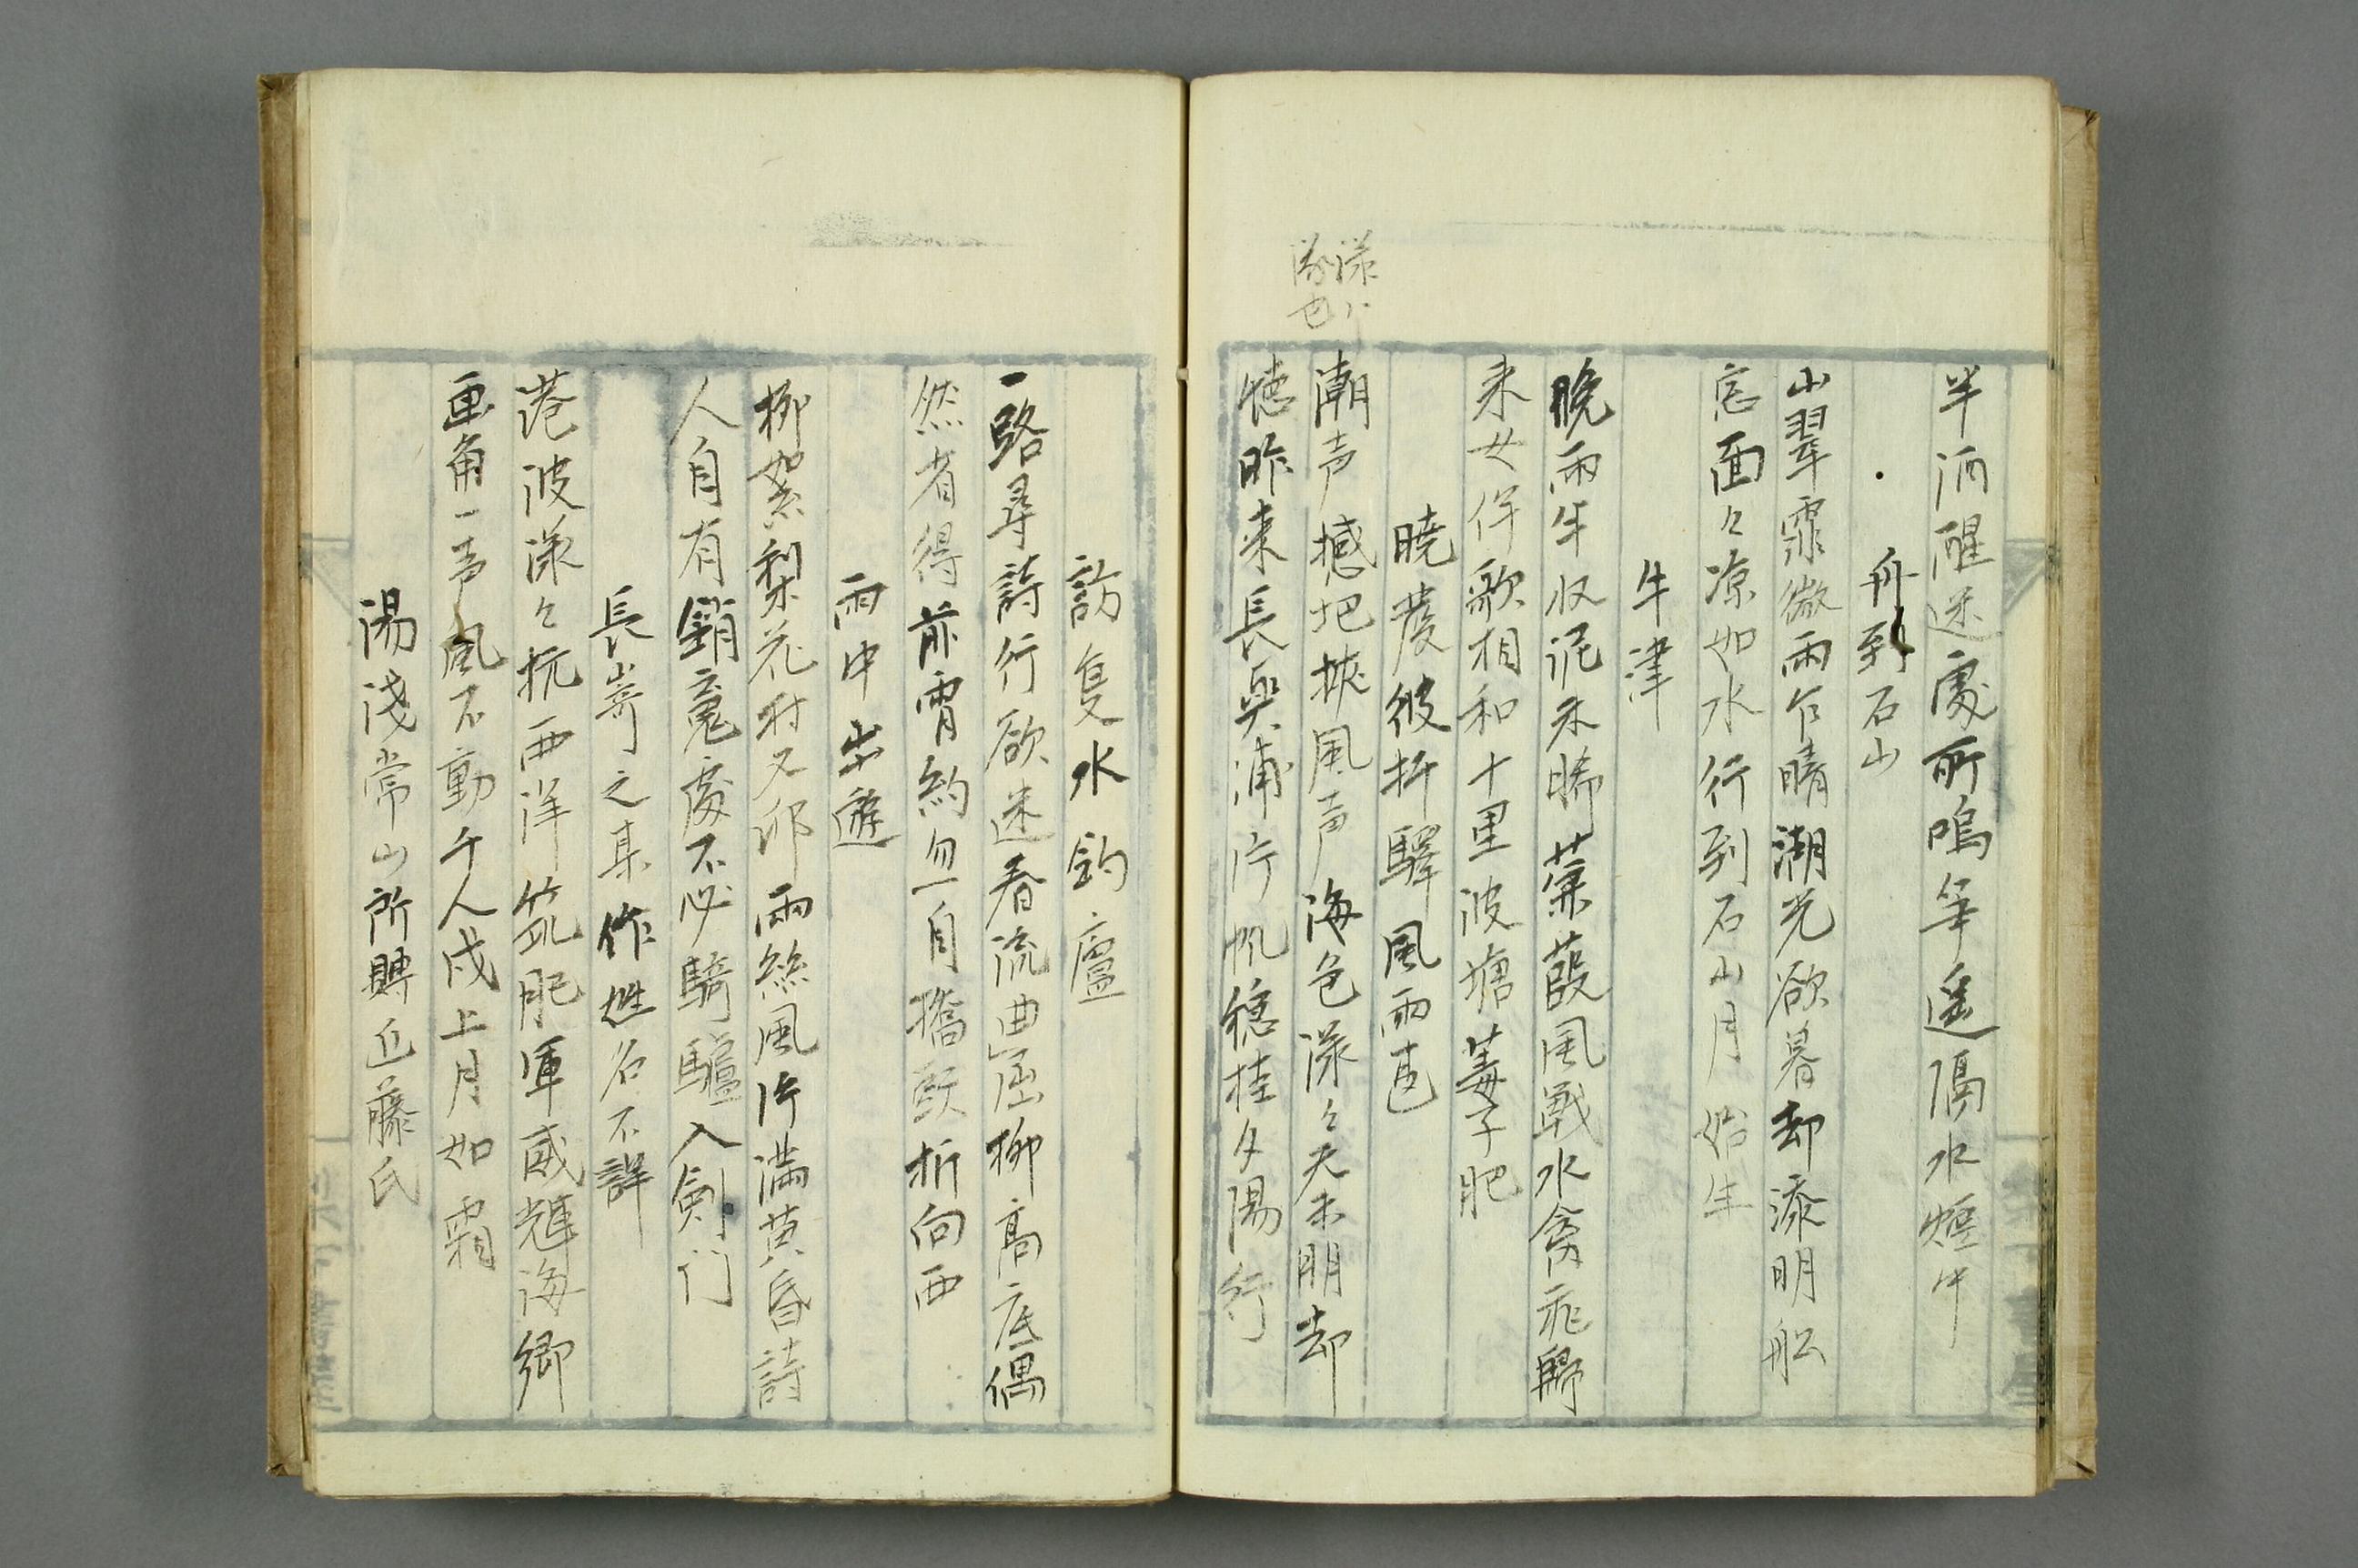 半酒醒迷處所嗚笋遥隔水煙中
舟到石山
山翠霏微雨乍晴湖光欲暮却添明船
窓面々凉如水行到石山月始生
牛津
晩雨牛收泥未晞葉葭風戦水禽飛歸
来女伴歌相和十里波塘菱子肥
暁發彼杵驛風雨甚
漾
也
潮声撼地挾風声海色漾々天未明却
憶昨来長與浦片帆穏挂夕陽行
訪隻水釣廬
一路尋詩行欲迷春流曲屈柳高底偶
然省得前宵約勿自擡頭折向西
雨中出遊
柳絮梨花村又邨雨絲風片満黄昏詩
人自有銷魂處不必騎驢入剣门
長嵜之某作姓名不詳
港波漾々抗西洋筑肥軍威輝海郷
画角一声風不動千人戍上月如霜
湯浅常山所賻近藤氏